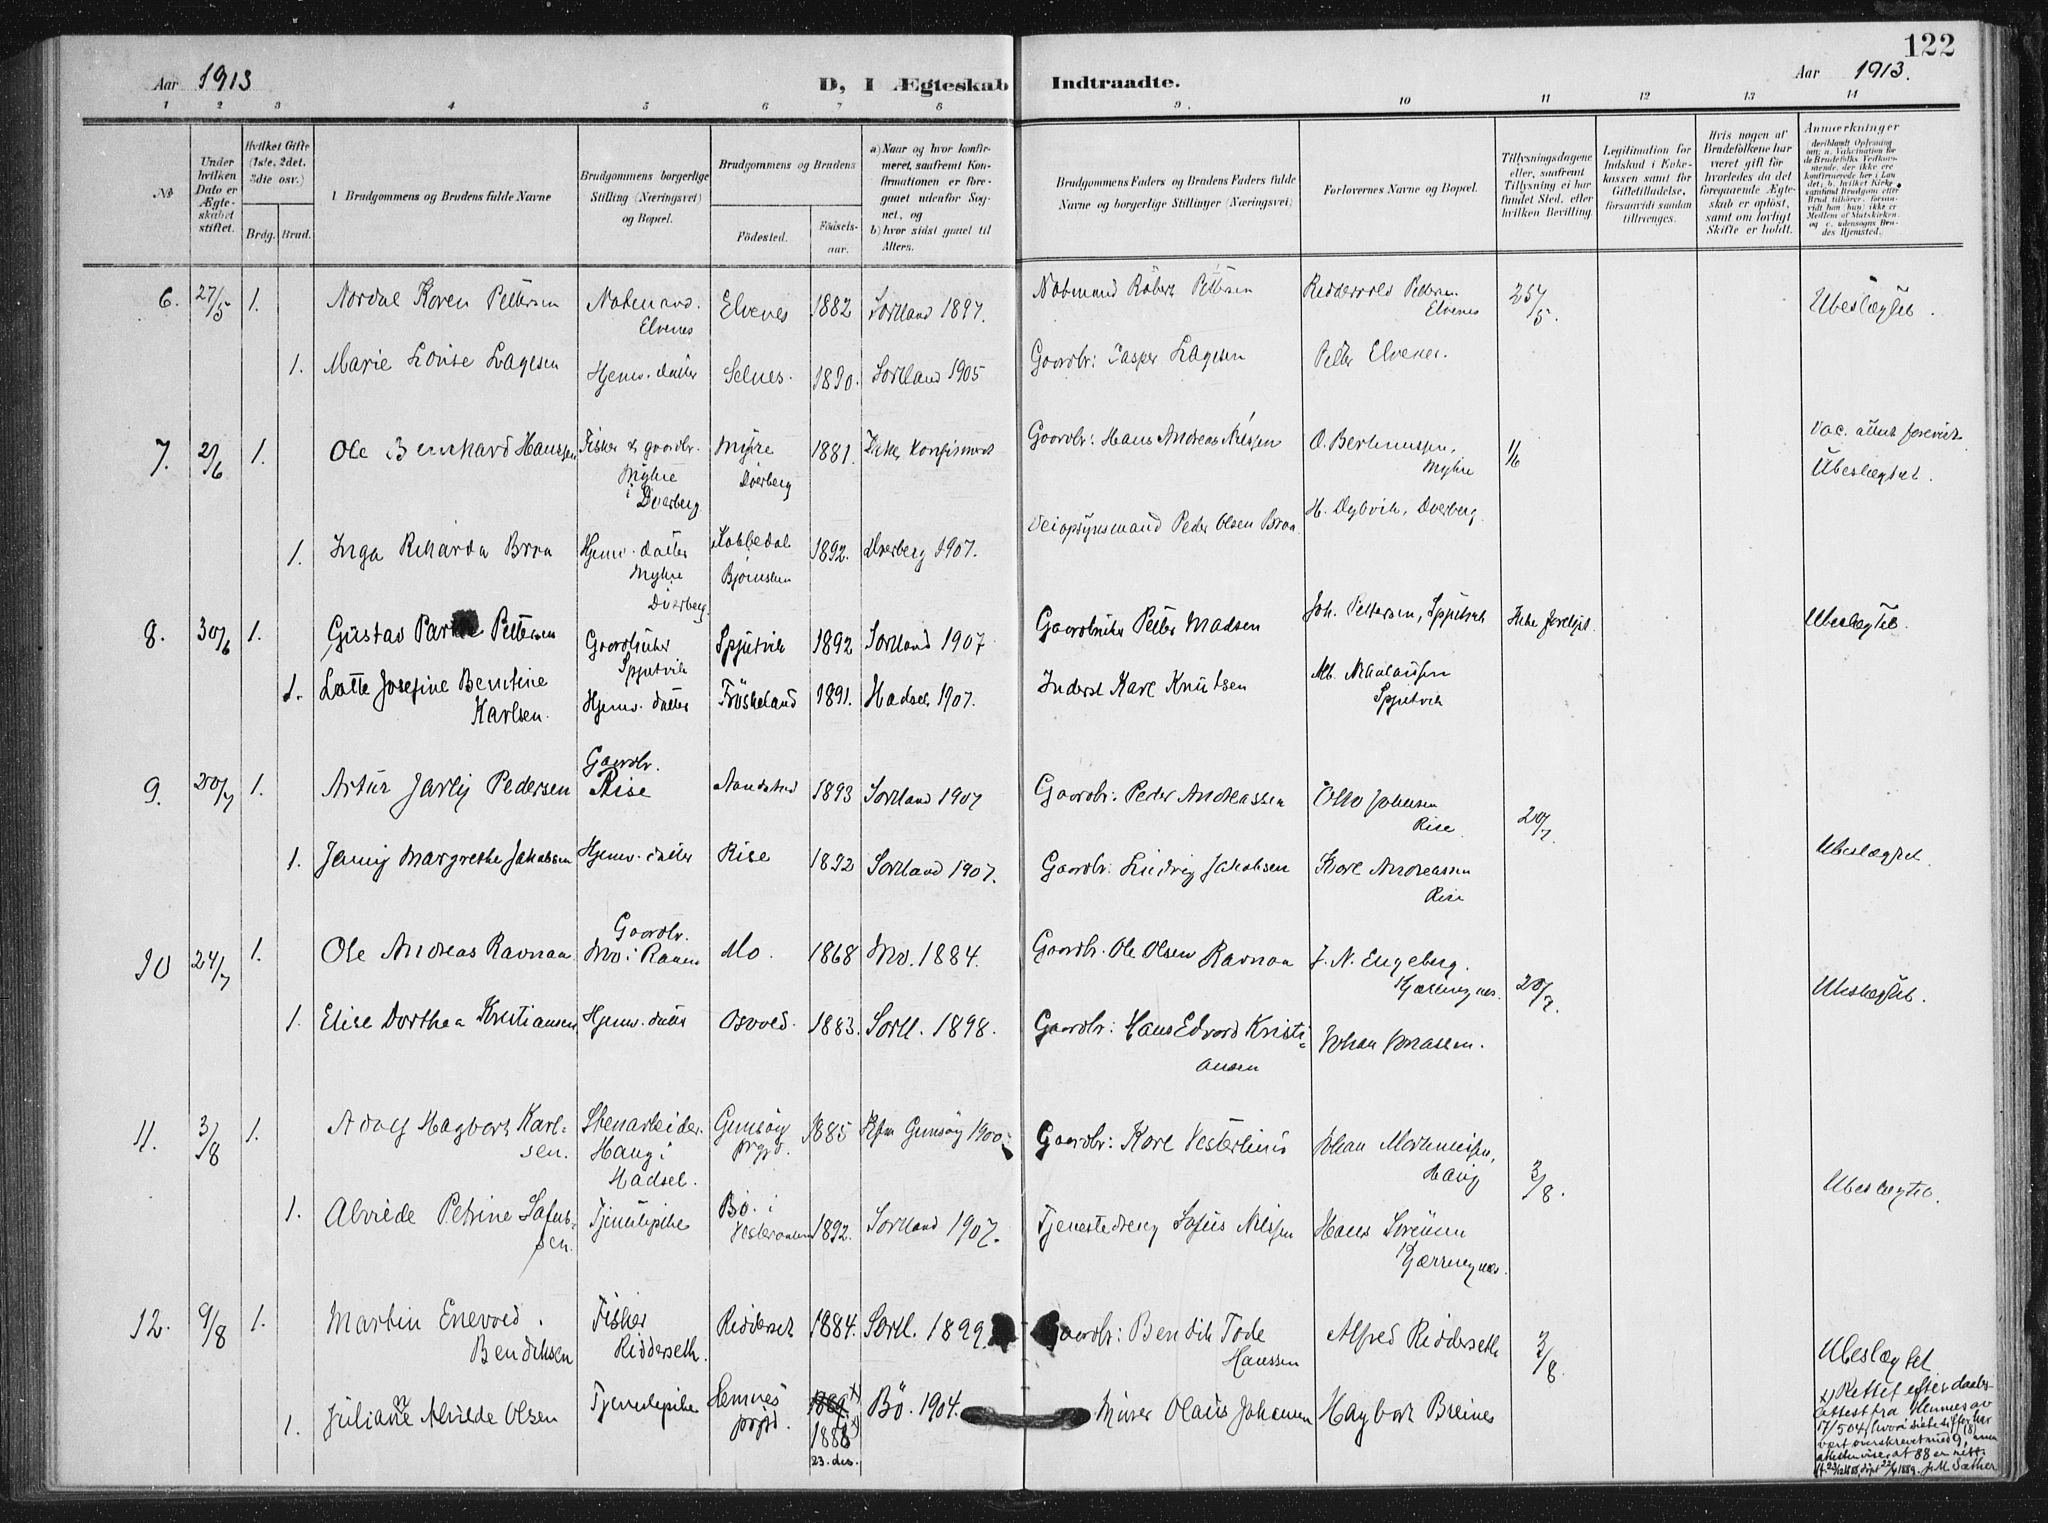 122
Aar 1913
D, I Ægteskab Indtraadte.
Aar 1913.
1 2 3 4 5 6 7 8 9 10 11 12 13 14
№
Under hvilken Dato er Ægteskabet stiftet.
Hvilket Gifte (1ste, 2det, 3die osv.)
Brdg. Brud.
1. Brudgommens og Brudens fulde Navne
Brudgommens borgerlige Stilling (Næringsvei) og Bopæl.
Brudgommens og Brudens
Fødested.
Fødselsaar.
a) Naar og hvor konfirmeret, saafremt Konfirmationen er foregaaet udenfor Sognet, og
b) hvor sidst gaaet til Alters.
Brudgommens Faders og Brudens Faders fulde Navne og borgerlige Stillinger (Næringsvei)
Forlovernes Navne og Bopæl.
Tillysningsdagene eller, saafremt Tillysning ei har fundet Sted, efter hvilken Bevilling.
Legitimation for Indskud i Enkekassen samt for Giftetilladelse, forsaavidt saadan tiltrænges.
Hvis nogen af Brudefolkene har været gift før hvorledes da det foregaaende Ægteskab er opløst, samt om lovligt Skifte er holdt.
Anmærkninger
(deriblandt Oplysning om: a. Vakcination for de Brudefolks Vedkommende, der ikke ere konfirmerede her i Landet; b. hvilket Kirkesamfund Brudgom eller Brud tilhører, forsaavidt han (hun) ikke er Medlem af Statskirken, og c. udensogns Brudes Hjemsted.
6. 27/5 1. Nordal Koren Pettersen Notmand. Elvenes Elvenes 1882 Sortland 1897. Notmand Robert Pettersen Pettersen Elvenes 25/5. Ubeslægtet.
1. Marie Lovise Lagesen Hjemv. datter Selnes. 1890. Sortland 1905 Gaardbr: Casper Lagesen Petter Elvenes.
7. 2/6 1. Ole Bernhard Hanssen Fisker & gaardbr. Myhre i Dverberg Myhre Dverberg 1881. Ikke konfirmert Gaardbr: Hans Andreas Nilssen O. Berthinussen, Myhre 1/6 Vac. attest forevist Ubeslægtet.
1. Inga Rikarda Braa Hjemv. datter Myhre Dverberg. Kobbedal Bjørnskin 1892. Dverberg 1907. Veiopsynsmand Peder Olsen Braa H. Dybvik, Dverberg.
8. 30/6 1. Gustav Pettersen Gaardbruker Spjutvik Spjutvik 1892 Sortland 1907 Gaardbruker Petter Madsen Joh. Pettersen, Spjutvik Ikke forelyst. Ubeslægtet.
1. Lotte Josefine Bentine Karlsen. Hjemv. datter Frøskeland 1891. Hadsel 1907. Inderst Karl Knutsen Spjutvik
9. 20/7 1. Artur Jarly Pedersen Gaardbr. Rise 1893 Sortland 1907 Gaardbr: Peder Andreassen Otto Johnsen Rise. 20/7.
1. Jenny Margrethe Jakobsen Hjemv. datter Rise 1892 Sortland 1907. Gaardbr: Ludvig Jakobsen Karl Andreassen Rise Ubeslægtet.
10 24/7 1. Ole Andreas Ravnaa Gaardbr. Mo i Ranen Mo. 1868 Mo. 1884. Gaardbr. Ole Olsen Ravnaa J. N. Engeberg. Kjærringnes. 20/7. Ubeslægtet.
1. Elise Dorthea Kristiansen Hjemv. datter Osvold. 1883. Sortl. 1898. Gaardbr: Hans Edvard Kristiansen Johan Jonassen.
11. 3/8 1. Adolf Hagbart Karlsen. Stenarbeider. Haug i Hadsel. Gimsøy prgjd. 1885 Gimsøy 1900. Gaardbr: Karl Johan Haug 3/8. Ubeslægtet.
1. Alvilde Petrine Sofussen. Tjenestepike Bø i Vesteraalen 1892. Sortland 1907. Tjenestedreng Sofus Nilssen Hans Sørensen Kjærringnes.
12. 9/8 1. Martin Enevold Bendiksen Fisker Ridderseth. Ridderset 1884. Sortl. 1899. Gaardbr: Bendik Tode Hanssen Alfred Ridderseth 3/8. Ubeslægtet
1. Juliane Alvilde Olsen Tjenestepike Hemnes prgjd. 1889 x) 1888 x) 23. des. Bø. 1904. Murer Olaus Johansen Hagbart Breines
x) Rettet efter daabsattest fra Hemnes av 17/5 04,